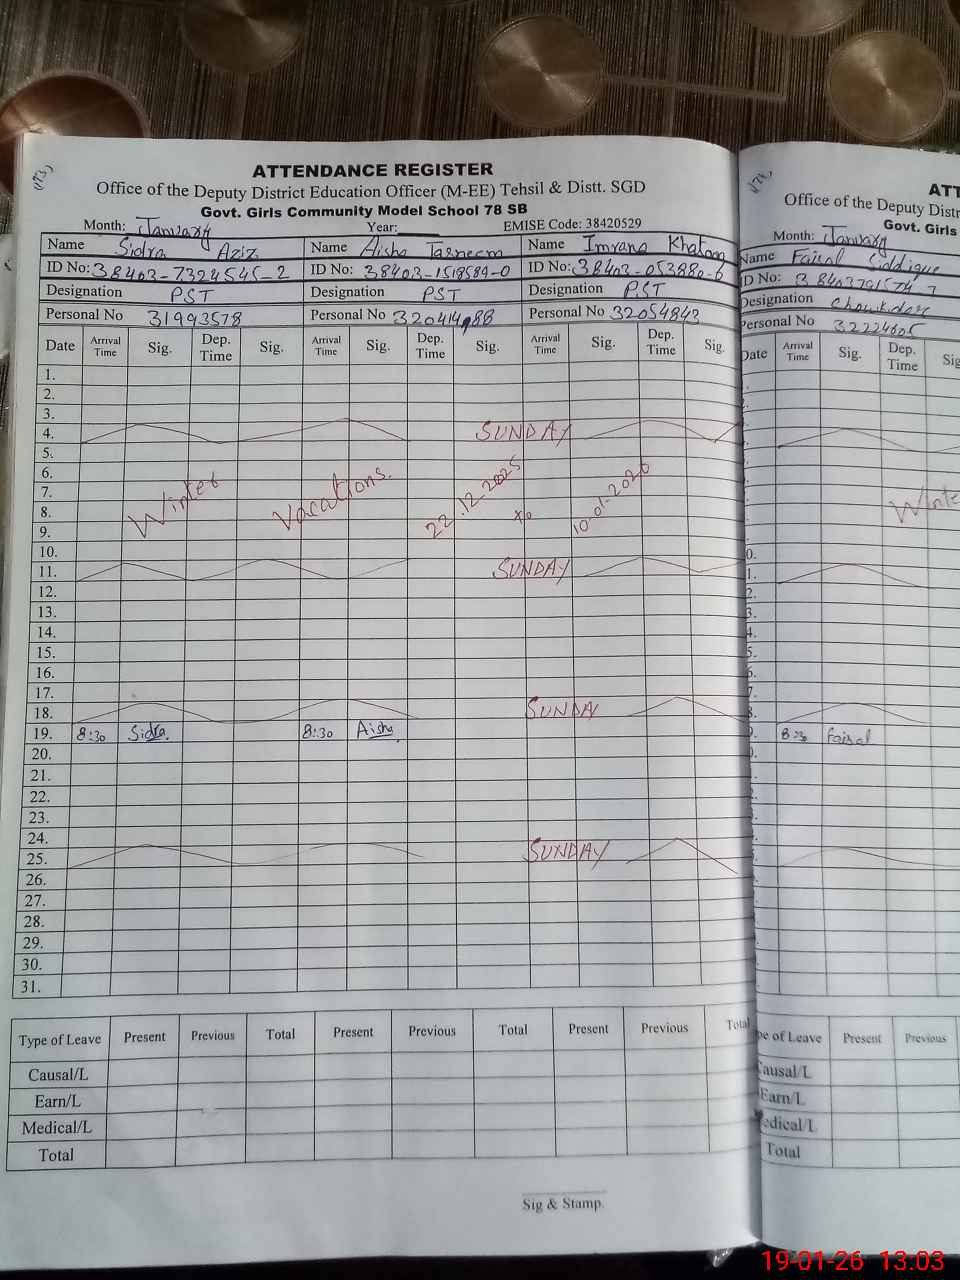 (173)
ATTENDANCE REGISTER
Office of the Deputy District Education Officer (M-EE) Tehsil & Distt. SGD
Govt. Girls Community Model School 78 SB
Month: January Year: EMISE Code: 38420529
Name Sidra Aziz Name Aisha Tasneem Name Imrana Khatoon
ID No: 38403-7324545-2 ID No: 38403-1518589-0 ID No: 38403-053880-6
Designation PST Designation PST Designation PST
Personal No 31993578 Personal No 32041488 Personal No 32054843
Date Arrival Time Sig. Dep. Time Sig. Arrival Time Sig. Dep. Time Sig. Arrival Time Sig. Dep. Time Sig.
1.
2.
3.
4. SUNDAY
5.
6.
7. Winter Vacations. 22.12.2025 to 10-01-2026
8.
9.
10.
11. SUNDAY
12.
13.
14.
15.
16.
17.
18. SUNDAY
19. 8:30 Sidra 8:30 Aisha
20.
21.
22.
23.
24.
25. SUNDAY
26.
27.
28.
29.
30.
31.
Type of Leave Present Previous Total Present Previous Total Present Previous Total
Causal/L
Earn/L
Medical/L
Total
Sig & Stamp.
ATT
Office of the Deputy Distr
Govt. Girls
Month: January
Name Faisal Siddique
ID No:
Designation Chowkidar
Personal No 32224605
Date Arrival Time Sig. Dep. Time Sig
Winte
8:30 Faisal
pe of Leave Present Previous
Causal/L
Earn/L
edical/L
Total
19-01-26 13:03